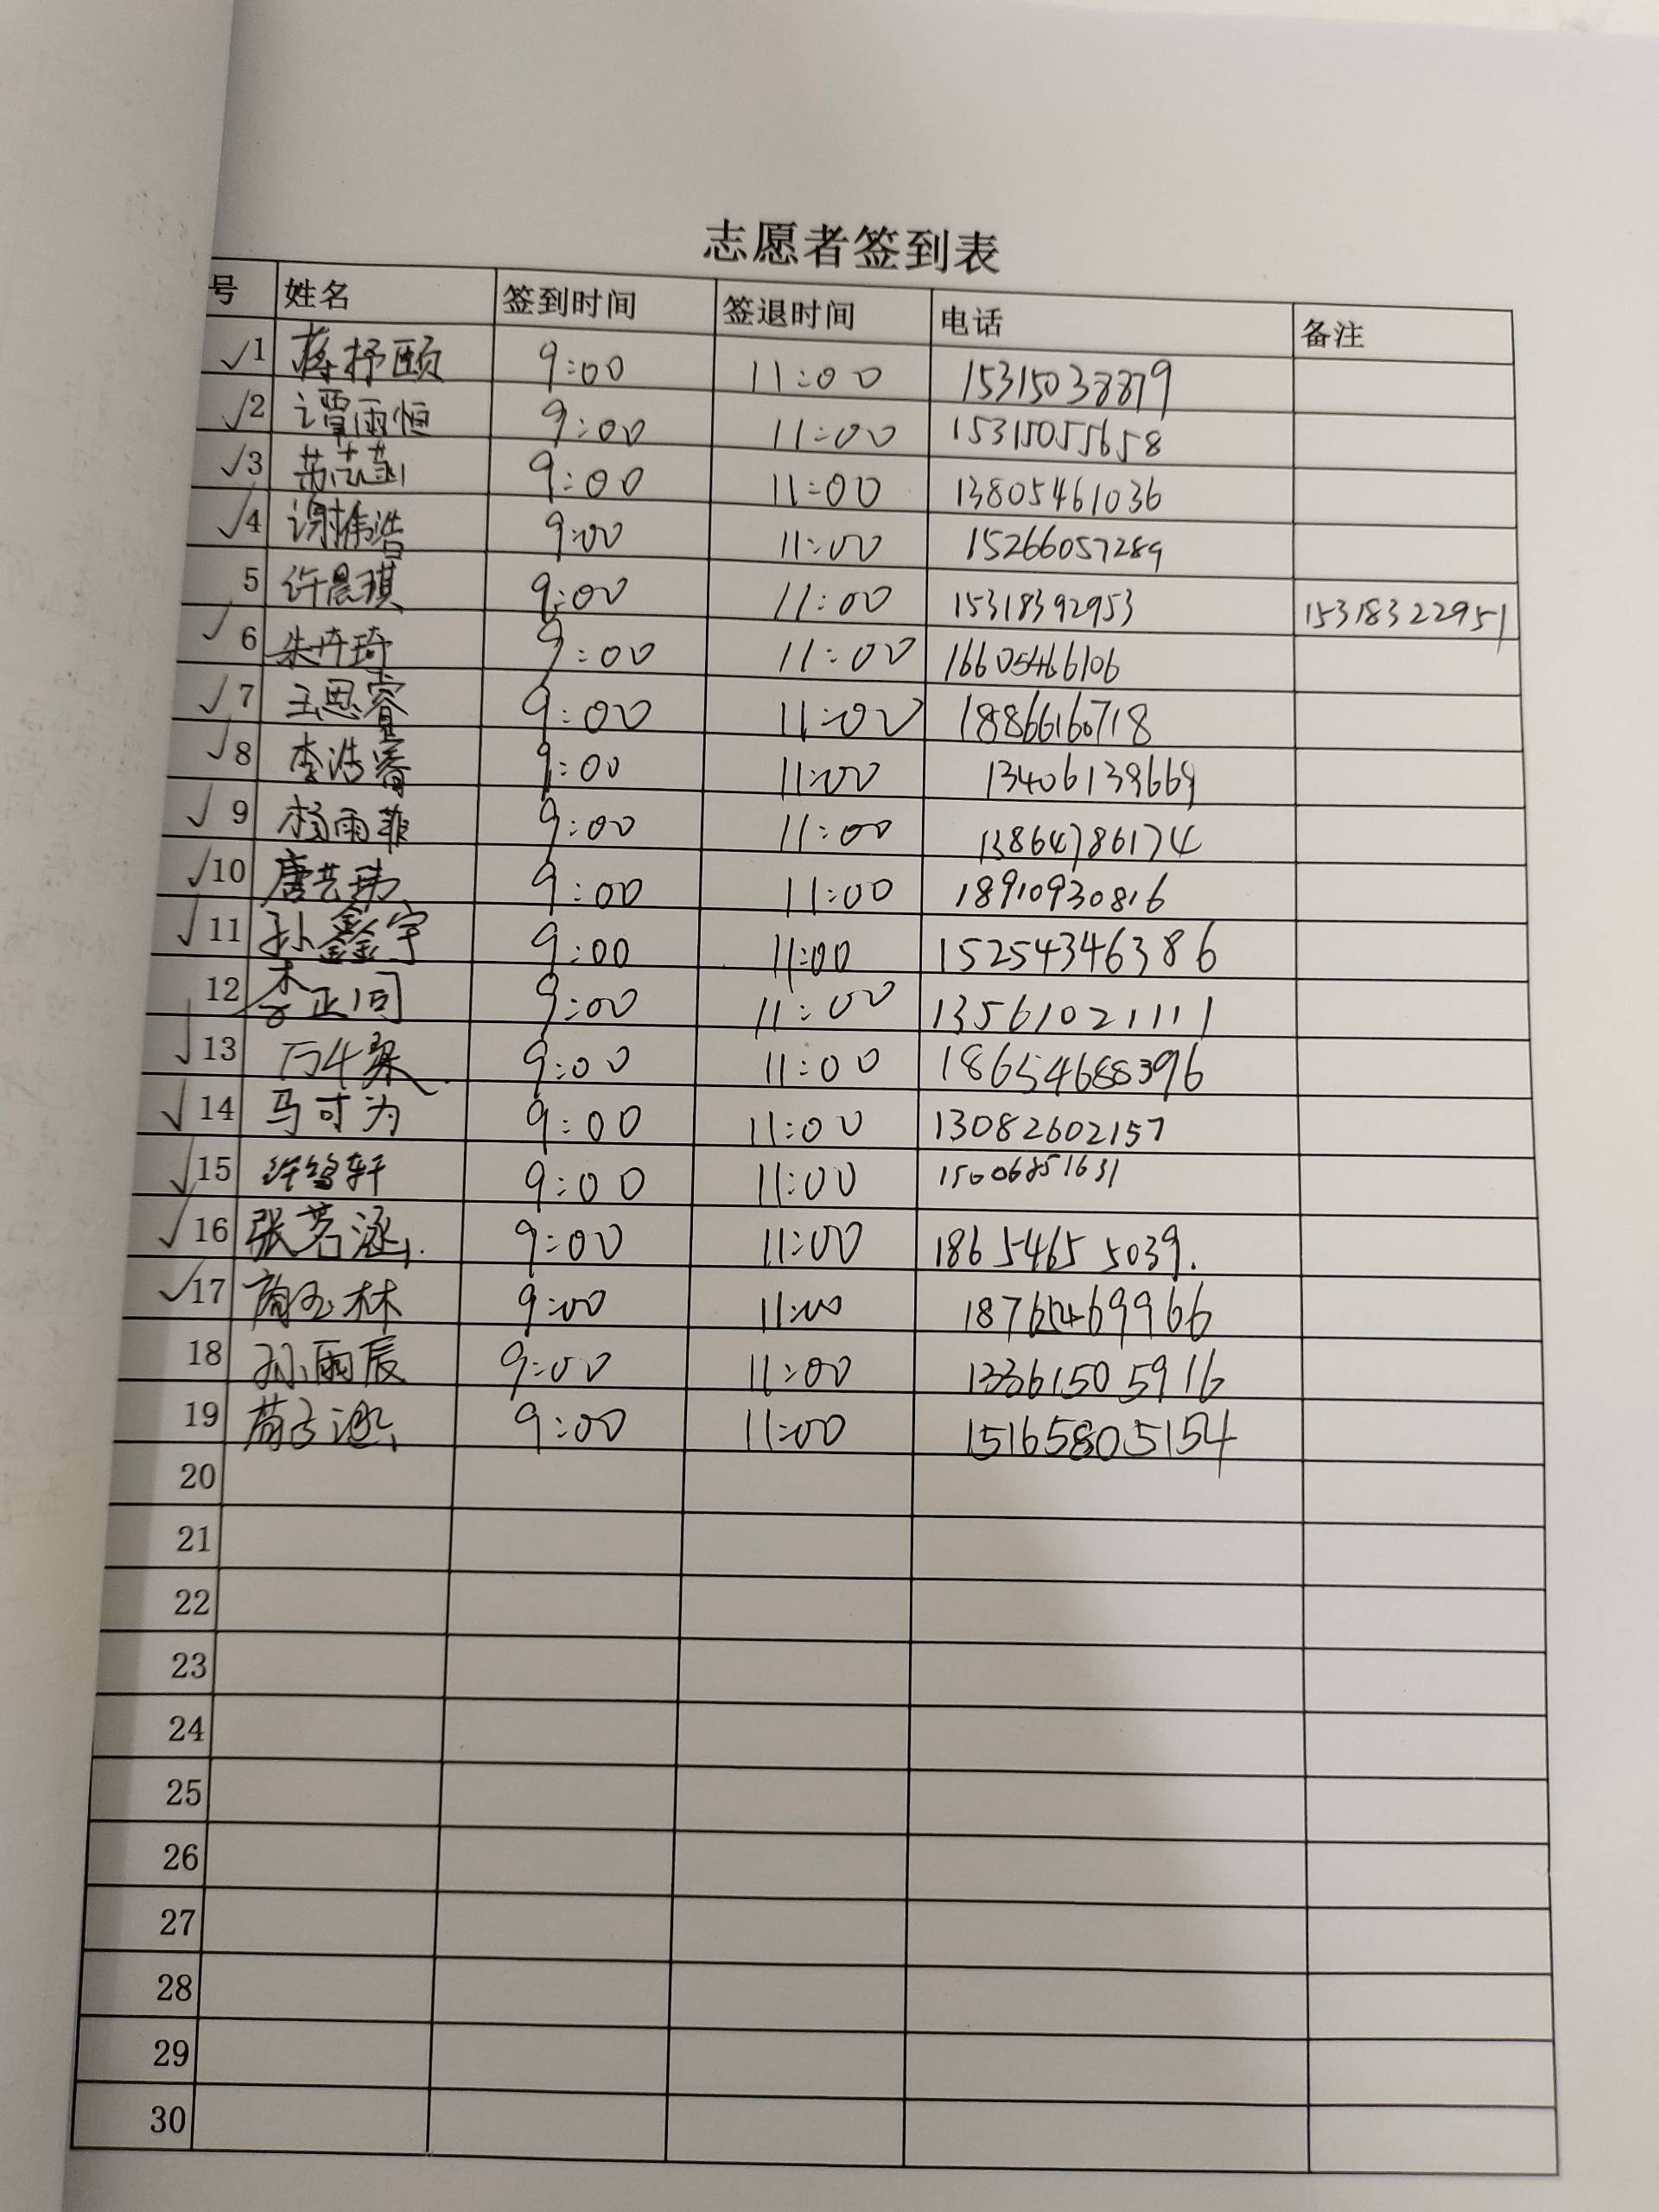 志愿者签到表
号 姓名 签到时间 签退时间 电话 备注
✓1 蒋抒颐 9:00 11:00 15315038879
✓2 谭雨恒 9:00 11:00 15315055658
✓3 9:00 11:00 13805461036
✓4 谢雅浩 9:00 11:00 15266057289
5 许晨琪 9:00 11:00 15318392953 15318322951
✓6 朱卉琦 9:00 11:00 16605466106
✓7 王思睿 9:00 11:00 18866160718
✓8 李浩睿 9:00 11:00 13406139669
✓9 杨雨菲 9:00 11:00 13864786174
✓10 唐艺玮 9:00 11:00 18910930816
✓11 孙鑫宇 9:00 11:00 15254346386
12 李正同 9:00 11:00 13561021111
✓13 万千梁 9:00 11:00 18654688396
✓14 马可为 9:00 11:00 13082602157
✓15 9:00 11:00 15006851631
✓16 张茗涵 9:00 11:00 18654655039.
✓17 9:00 11:00 18765469966
18 孙雨辰 9:00 11:00 13361505916
19 9:00 11:00 15165805154
20
21
22
23
24
25
26
27
28
29
30